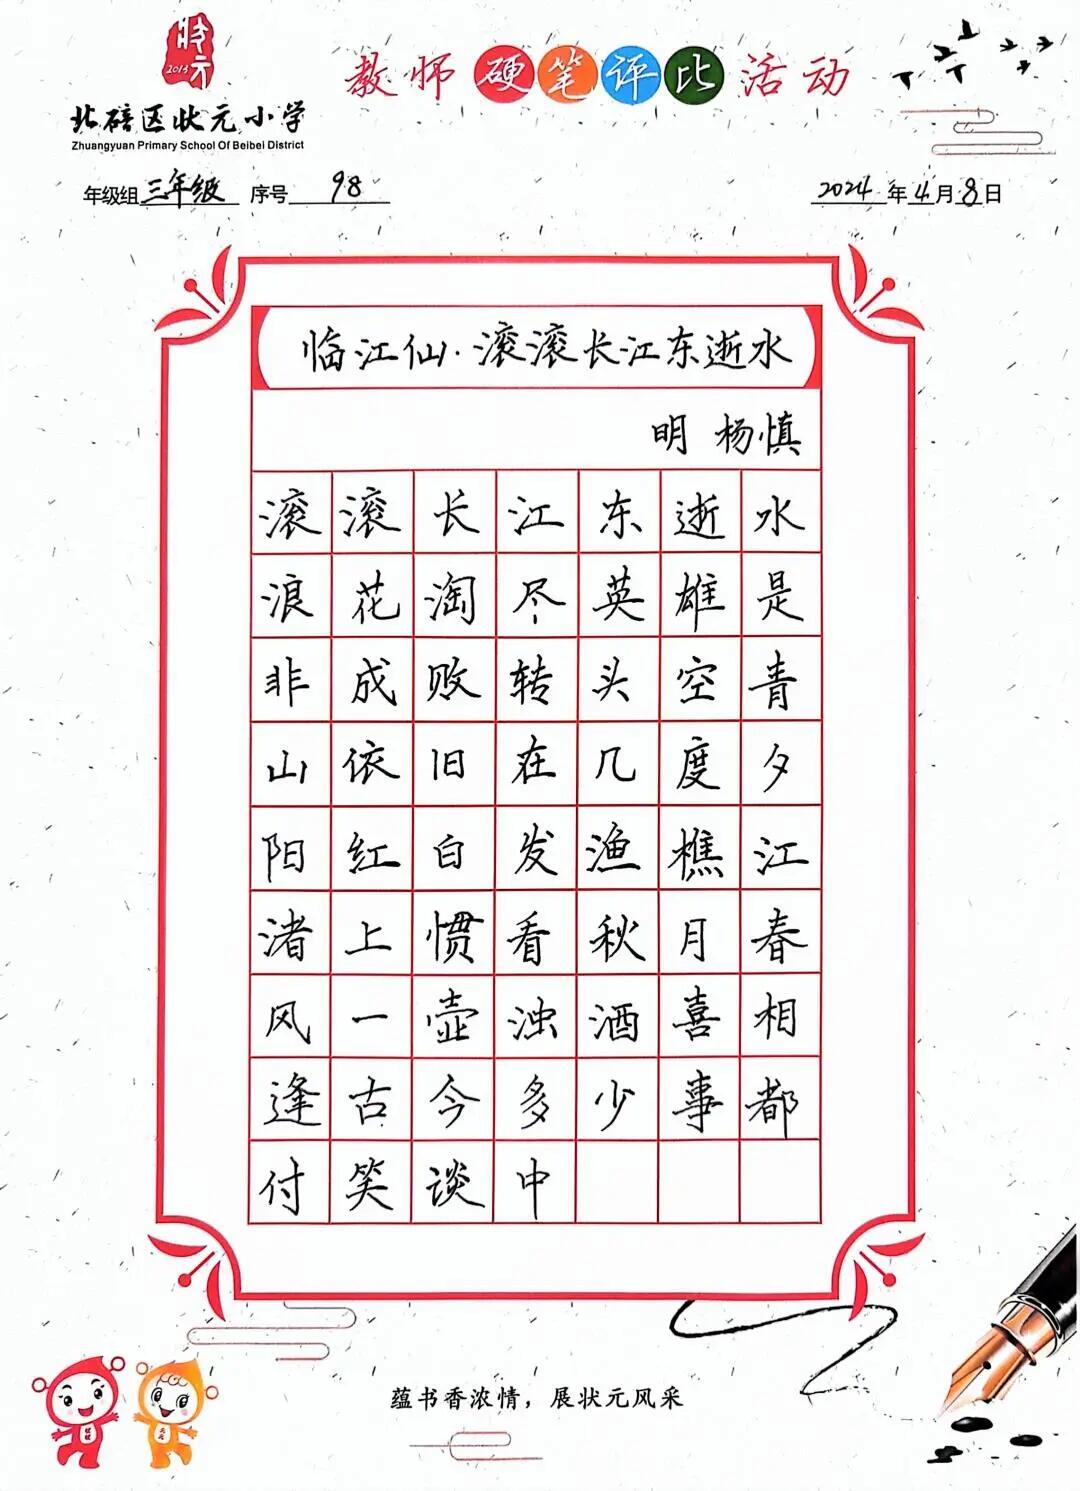 状元
2013
北碚区状元小学
Zhuangyuan Primary School Of Beibei District
教师硬笔评比活动
年级组三年级 序号 98 2024年4月8日
临江仙·滚滚长江东逝水
明 杨慎
滚滚长江东逝水
浪花淘尽英雄是
非成败转头空青
山依旧在几度夕
阳红白发渔樵江
渚上惯看秋月春
风一壶浊酒喜相
逢古今多少事都
付笑谈中
蕴书香浓情，展状元风采
状状 元元